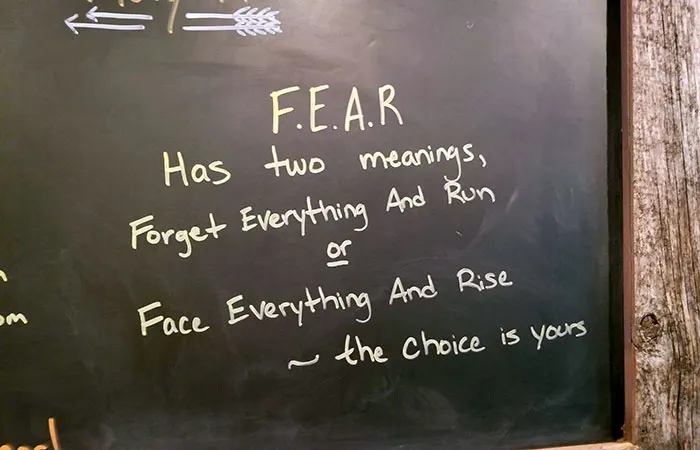 F.E.A.R
Has two meanings,
Forget Everything And Run
or
Face Everything And Rise
~ the choice is yours